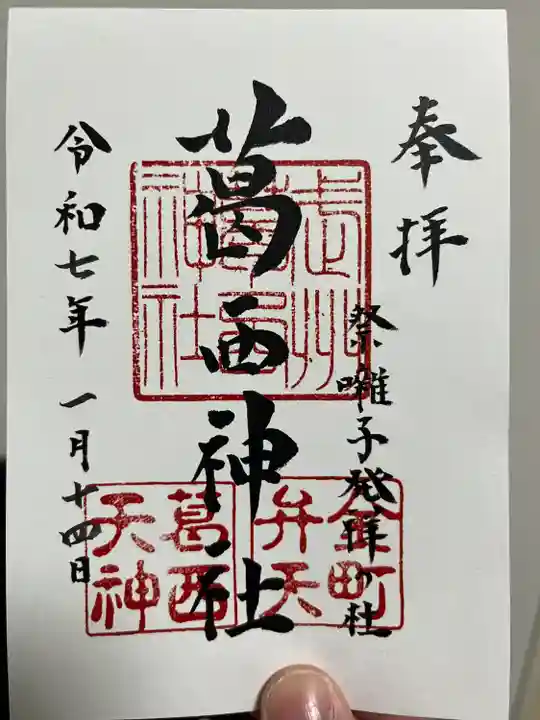 奉拝
祭囃子発祥の社
葛西神社
令和七年一月十四日
金町
弁天
葛西
天神